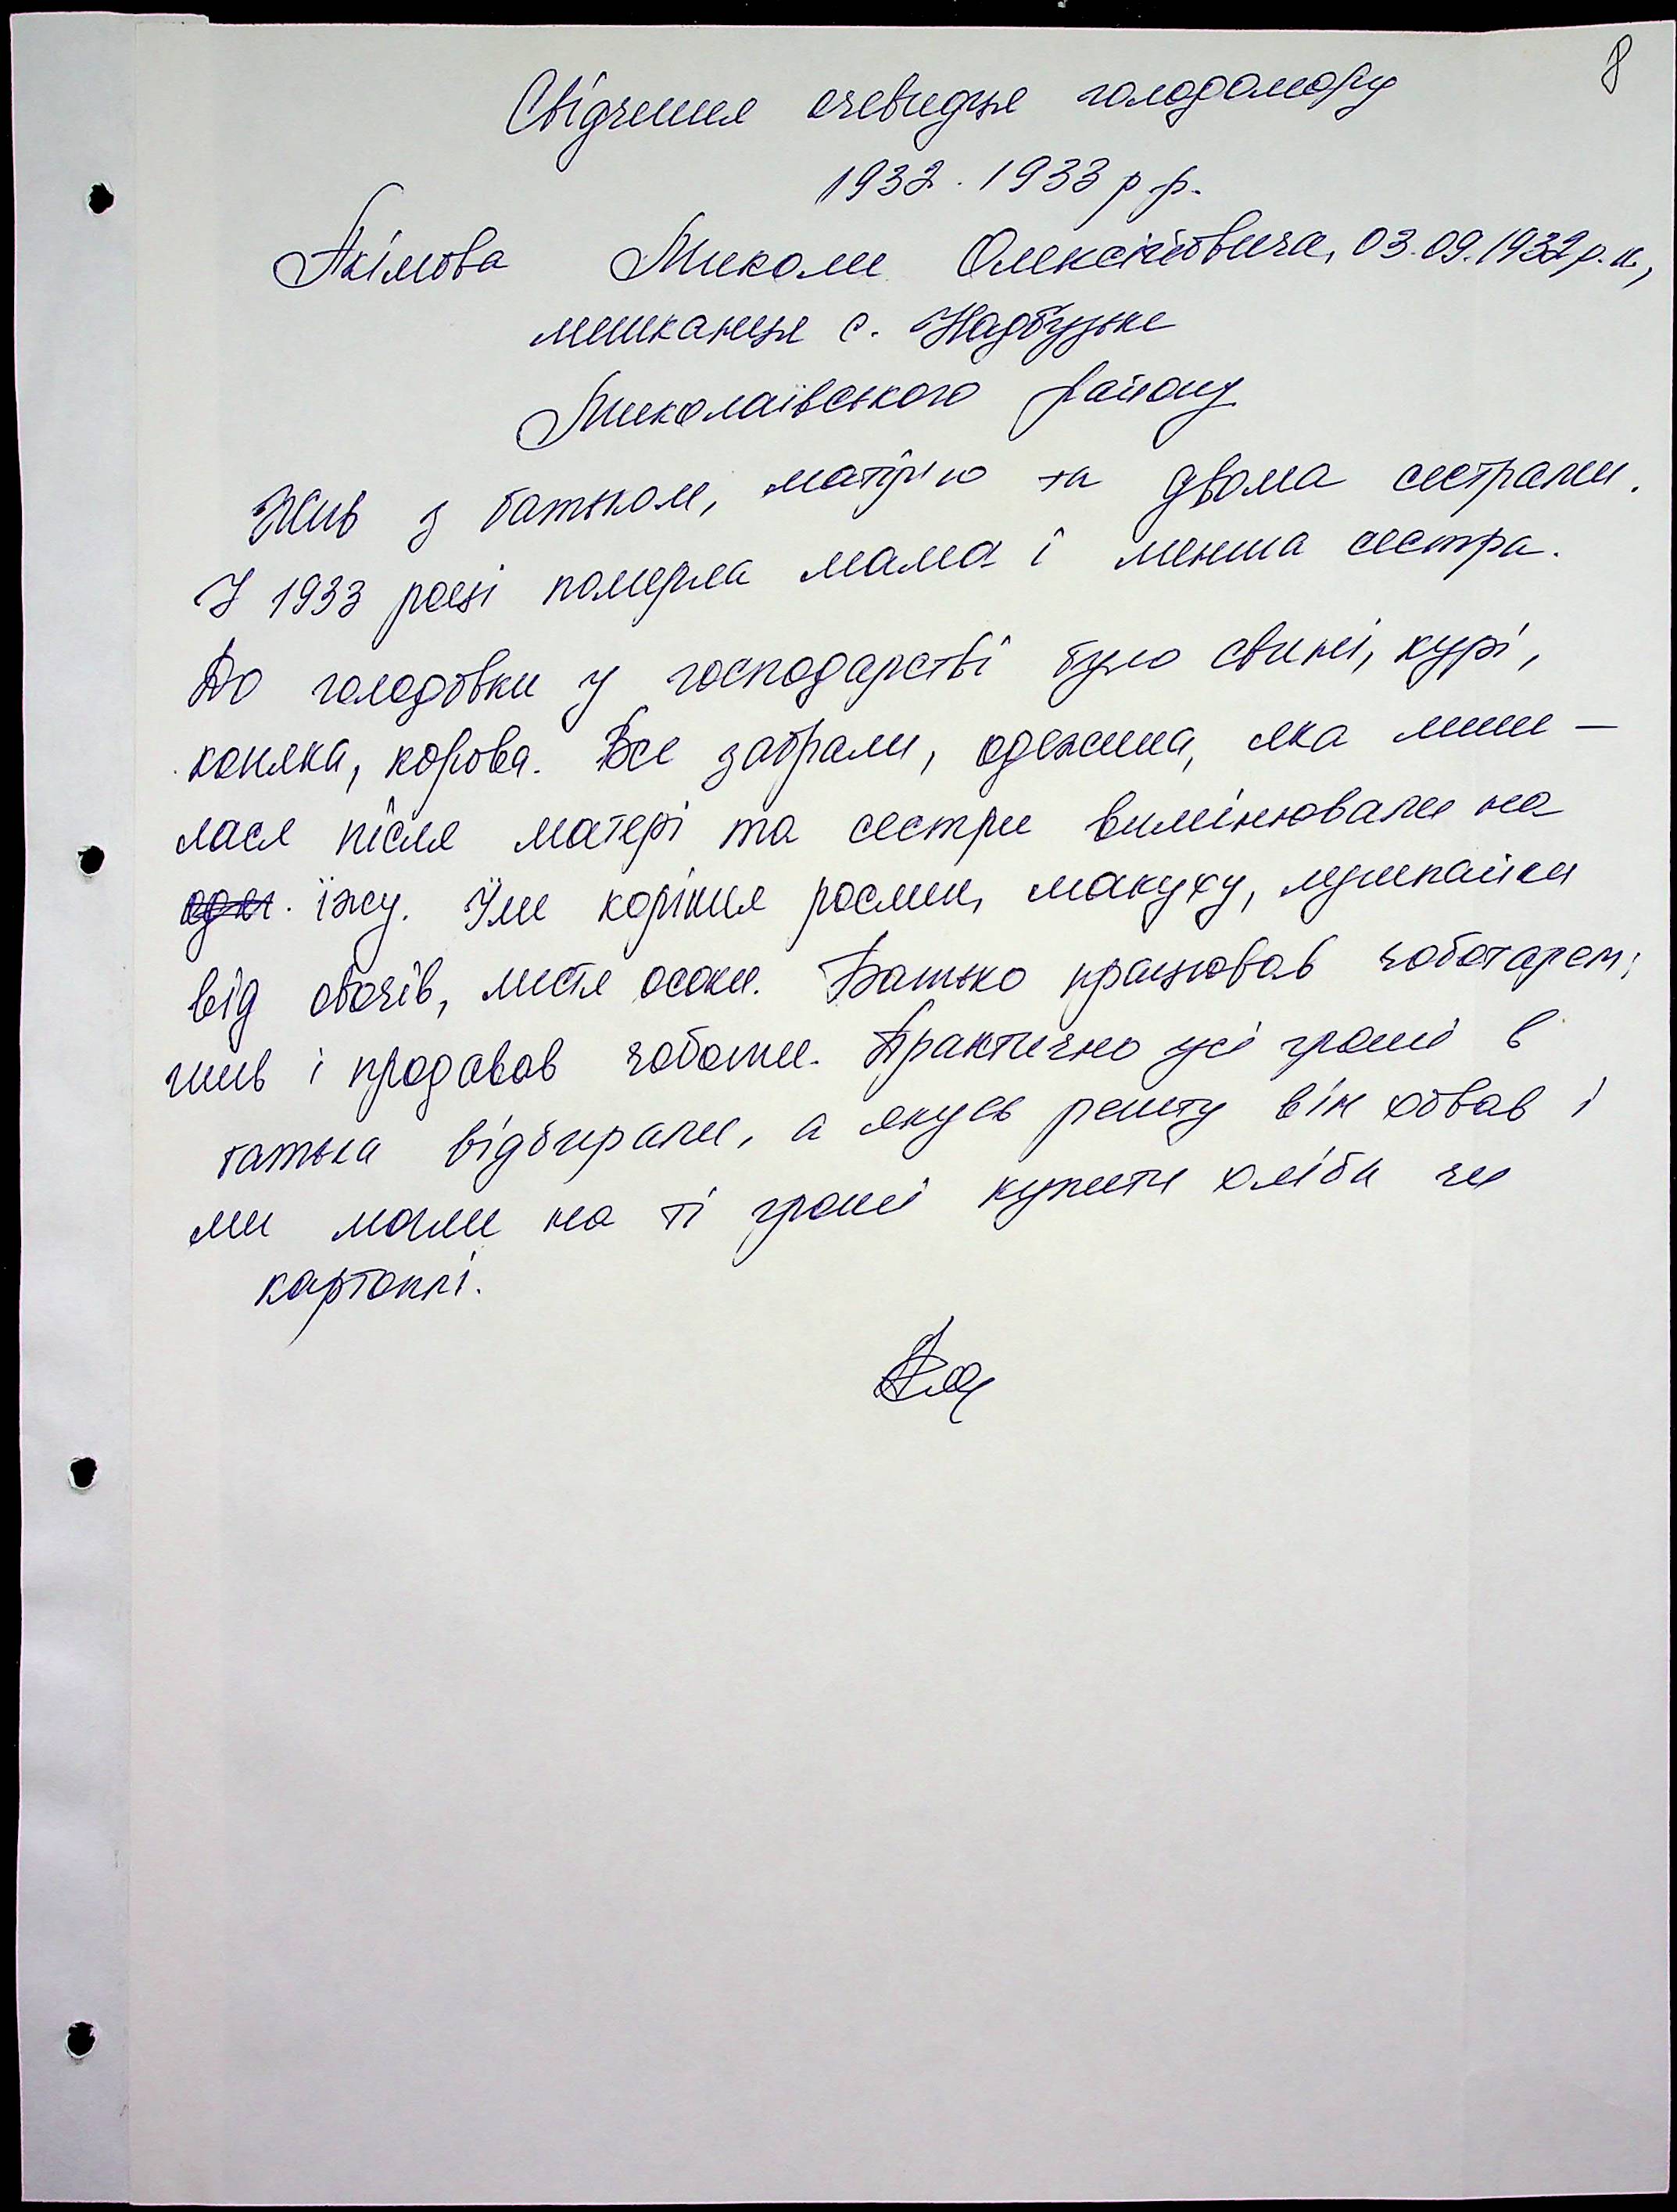 8
Свідчення очевидця голодомору
1932. 1933 р.р.
Акімова Миколи Олексійовича, 03.09.1932 р.н.,
мешканця с. Надбузьке
Миколаївського району
Жив з батьком, матірью та двома сестрами.
У 1933 році померла мама і менша сестра.
До голодовки у господарстві було свині, курі,
коняка, корова. Все забрали, одежина, яка лиши-
лася після матері та сестри вимінювали на
їжу. Їли коріння рослин, макуху, лушпайки
від овочів, листя осоки. Батько працював чоботарем;
шив і продавав чоботи. Практично усі гроші в
батька відбирали, а якусь решту він ховав і
ми могли на ті гроші купити хліба чи
картоплі.